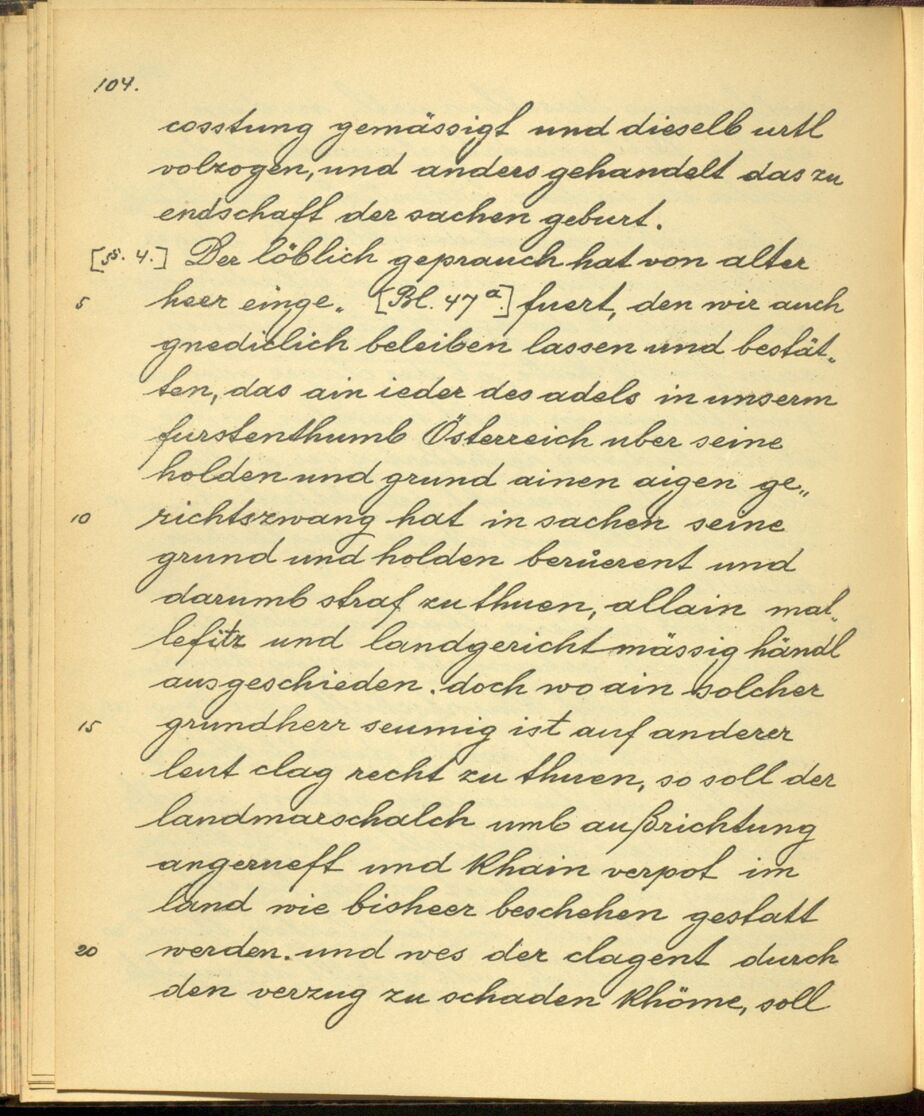 104.
cosstung gemässigt und dieselb urtl
volzogen, und anders gehandelt das zu
endschaft der sachen geburt.
[§§. 4.] Der löblich geprauch hat von alter
5 heer einge„ [Bl. 47a.] fuert, den wir auch
gnediclich beleiben lassen und bestät„
ten, das ain ieder des adels in unserm
furstenthumb Österreich uber seine
holden und grund ainen aigen ge„
10 richtszwang hat in sachen seine
grund und holden berůerent und
darumb straf zu thuen, allain mal„
lefitz und landgericht mässig händl
ausgeschieden. doch wo ain solcher
15 grundherr seumig ist auf anderer
leut clag recht zu thuen, so soll der
landmarschalch umb außrichtung
angerueft und khain verpot im
land wie bisheer beschehen gestatt
20 werden. und wes der clagent durch
den verzug zu schaden khöme, soll